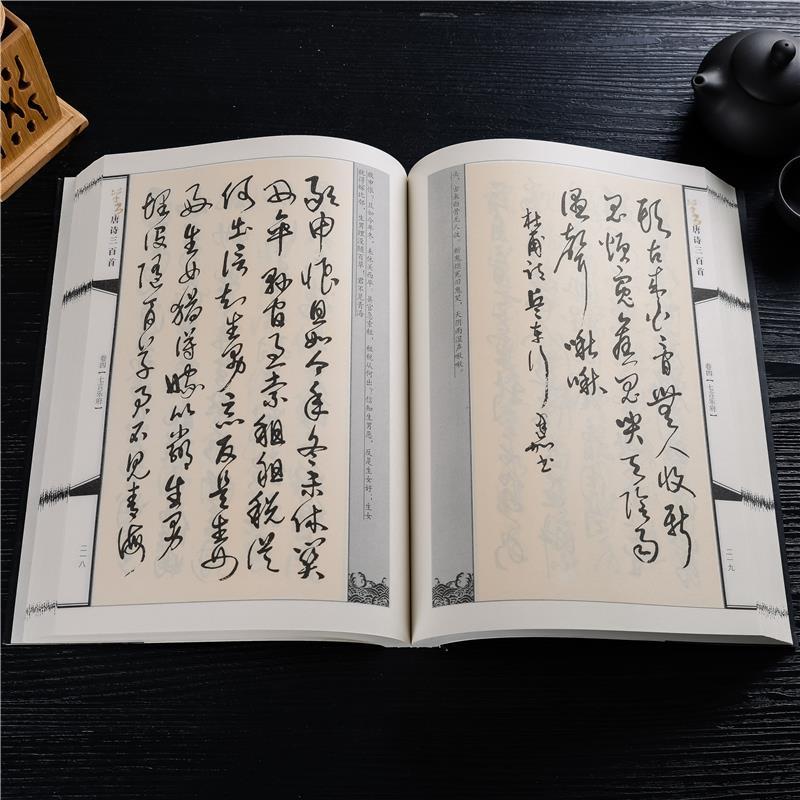 敢申恨？且如今年冬，未休关西卒。县官急索租，租税从何出？信知生男恶，反是生女好；生女
犹得嫁比邻，生男埋没随百草。君不见青海
敢申恨且如今年冬未休關
西卒縣官急索租租稅從
何出信知生男惡反是生女
好生女猶得嫁比鄰生男
埋没隨百草君不見青海
唐诗三百首
卷四【七言乐府】
二一八
唐诗三百首
卷四【七言乐府】
二一九
頭古來白骨無人收新
鬼煩冤舊鬼哭天陰雨
濕聲啾啾
杜甫詩兵車行
头，古来白骨无人收。新鬼烦冤旧鬼哭，天阴雨湿声啾啾。